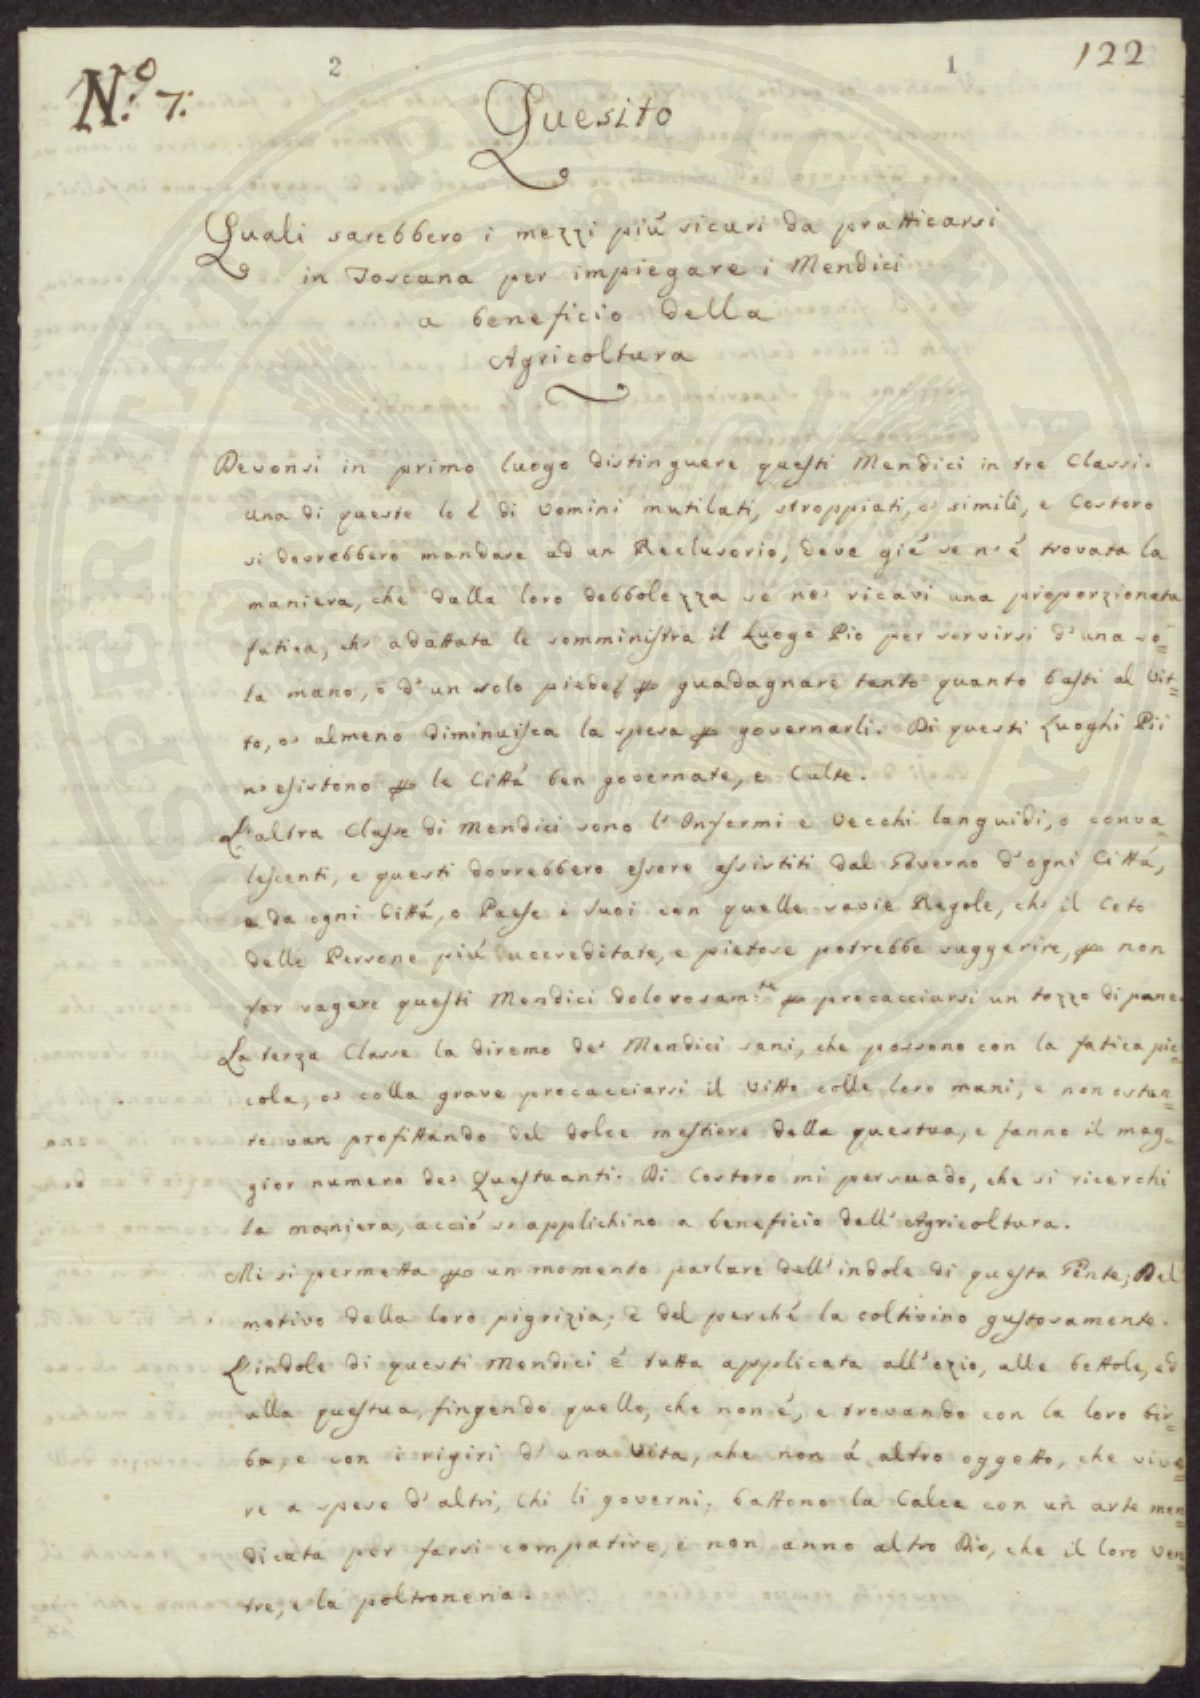 N.º 7.
2
1
122
Quesito
Quali sarebbero i mezzi piú sicuri da pratticarsi
in Toscana per impiegare i Mendici
a beneficio della
Agricoltura
Devonsi in primo luogo distinguere questi Mendici in tre Classi.
Una di queste lo è di Uomini mutilati, stroppiati, o simili, e Costoro
si dovrebbero mandare ad un Reclusorio, dove giá se n'é trovata la
maniera, che dalla loro debbolezza se ne ricavi una proporzionata
fatica, che adattata le somministra il Luogo Pio per servirsi d'una so=
la mano, o d'un solo piede p guadagnare tanto quanto basti al Vit=
to, o almeno diminuisca la spesa p governarli. Di questi Luoghi Pii
n'esistono p le Cittá ben governate, e Culte.
L'altra Classe di Mendici sono l'Infermi e Vecchi languidi, o conva=
lescenti, e questi dovrebbero essere assistiti dal Governo d'ogni Cittá,
e da ogni Cittá, o Paese i suoi con quelle savie Regole, che il Ceto
delle Persone piú accreditate, e pietose potrebbe suggerire, p non
far vagare questi Mendici dolorosam:te p procacciarsi un tozzo di pane.
La terza Classe la diremo de' Mendici sani, che possono con la fatica pic=
cola, o colla grave procacciarsi il Vitto colle loro mani, e non ostan=
te van profittando del dolce mestiere della questua, e fanno il mag=
gior numero de' Questuanti. Di Costoro mi persuado, che si ricerchi
la maniera, acció si applichino a beneficio dell'Agricoltura.
Mi si permetta p un momento parlare dell'indole di questa Gente; Del
motivo della loro pigrizia; e del perché la coltivino gustosamente.
L'indole di questi Mendici é tutta applicata all'ozio, alle bettole, ed
alla questua, fingendo quello, che non é, e trovando con la loro bir=
ba, e con i rigiri d'una Vita, che non á altro oggetto, che vive=
re a spese d'altri, Chi li governi; battono la Calca con un arte men=
dicata per farsi compatire, e non anno altro Dio, che il loro Ven=
tre, e la poltroneria.